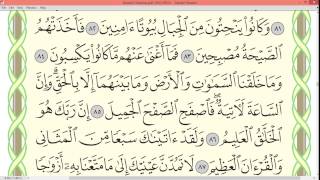 ٨١ وَكَانُوا۟ يَنْحِتُونَ مِنَ ٱلْجِبَالِ بُيُوتًا ءَامِنِينَ ٨٢ فَأَخَذَتْهُمُ
ٱلصَّيْحَةُ مُصْبِحِينَ ٨٣ فَمَآ أَغْنَىٰ عَنْهُم مَّا كَانُوا۟ يَكْسِبُونَ ٨٤
وَمَا خَلَقْنَا ٱلسَّمَٰوَٰتِ وَٱلْأَرْضَ وَمَا بَيْنَهُمَآ إِلَّا بِٱلْحَقِّ وَإِنَّ
ٱلسَّاعَةَ لَءَاتِيَةٌ فَٱصْفَحِ ٱلصَّفْحَ ٱلْجَمِيلَ ٨٥ إِنَّ رَبَّكَ هُوَ
ٱلْخَلَّٰقُ ٱلْعَلِيمُ ٨٦ وَلَقَدْ ءَاتَيْنَٰكَ سَبْعًا مِّنَ ٱلْمَثَانِى
وَٱلْقُرْءَانَ ٱلْعَظِيمَ ٨٧ لَا تَمُدَّنَّ عَيْنَيْكَ إِلَىٰ مَا مَتَّعْنَا بِهِۦٓ أَزْوَٰجًا